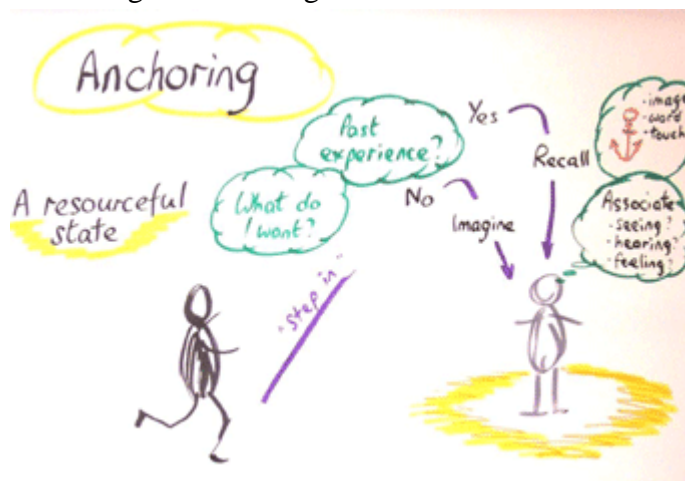 Anchoring
A resourceful
state
What do
I want?
Past
experience?
Yes
Recall
No
Imagine
"step in"
· image
· word
· touch
Associate
· seeing?
· hearing?
· feeling?